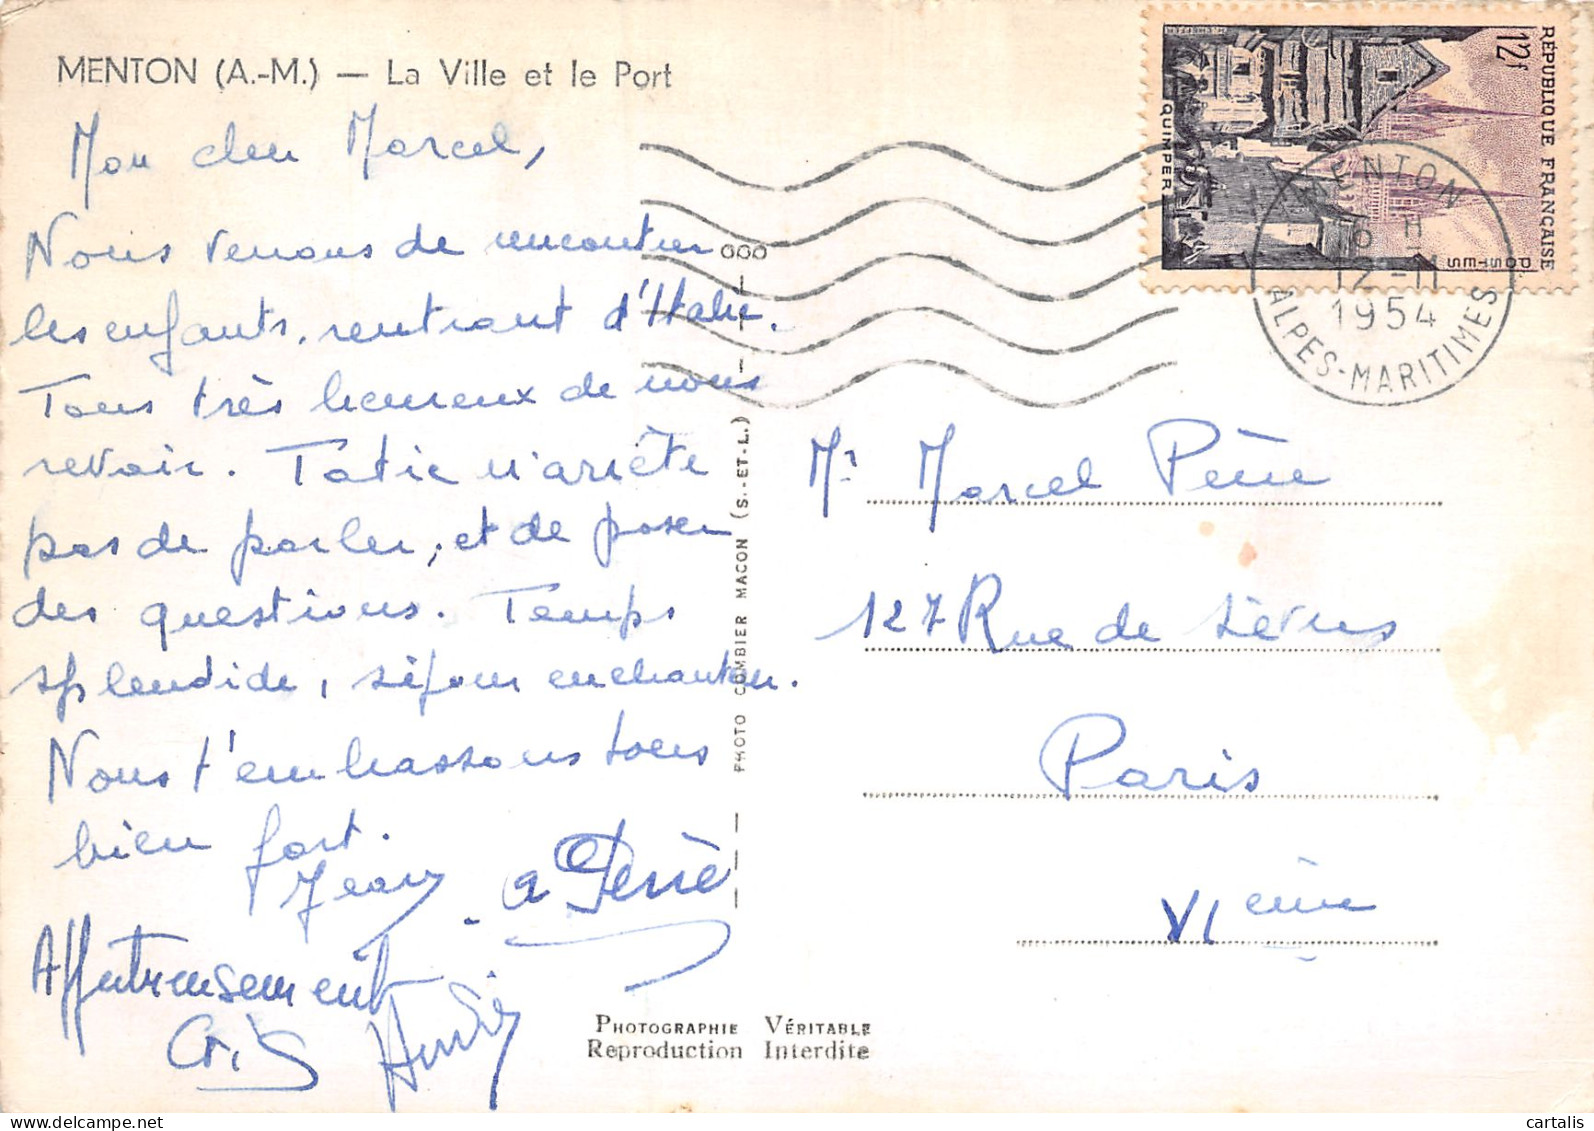 MENTON (A.-M.) — La Ville et le Port
Mon cher Marcel,
Nous venons de rencontrer
les enfants, rentrant d'Italie.
Tous très heureux de nous
revoir. Tatie n'arrête
pas de parler, et de poser
des questions. Temps
splendide, séjour enchanteur.
Nous t'embrassons tous
bien fort.
Jean
Affectueusement
RÉPUBLIQUE FRANÇAISE
12f
POSTES
QUIMPER
MENTON
12-11
1954
ALPES-MARITIMES
PHOTO COMBIER MACON (S.-ET-L.)
Mr Marcel Pème
127 Rue de Sèvres
Paris
VIème
PHOTOGRAPHIE VÉRITABLE
Reproduction Interdite
cartalis